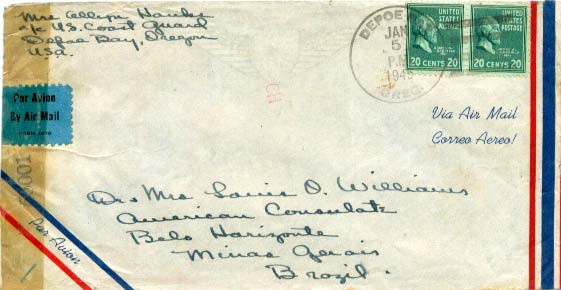 Mrs Allyn Hanks
c/o U.S. Coast Guard
Depoe Bay, Oregon
U.S.A.
DEPOE
JAN
5
P.M.
1945
OREG.
UNITED STATES POSTAGE
20 CENTS 20
UNITED STATES POSTAGE
20 CENTS 20
Par Avion
By Air Mail
Via Air Mail
Correo Aereo!
Mrs Louis O. Williams
American Consulate
Belo Horizonte
Minas Gerais
Brazil.
Par Avion